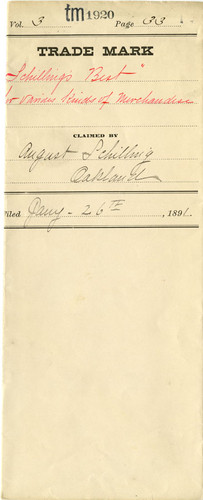 tm 1920
Vol. 3 Page 33
TRADE MARK
"Schilling's Best"
for various kinds of Merchandise
CLAIMED BY
August Schilling
Oakland
Filed Jany. 26th, 1891.